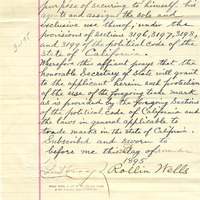 purpose of securing to himself his
agents and assigns the sole and
exclusive use thereof, under the
provisions of sections 3196, 3197, 3198,
and 3199 of the political code of the
State of California.
Wherefore this affiant prays that the
honorable Secretary of State will grant
to the applicant herein said protection
of the use of the forgoing trade mark
as provided by the forgoing sections
of the political code of California and
the laws in general applicable to
trade marks in the state of California.
Subscribed and sworn to
before me this day of
1895
Rollin Wells